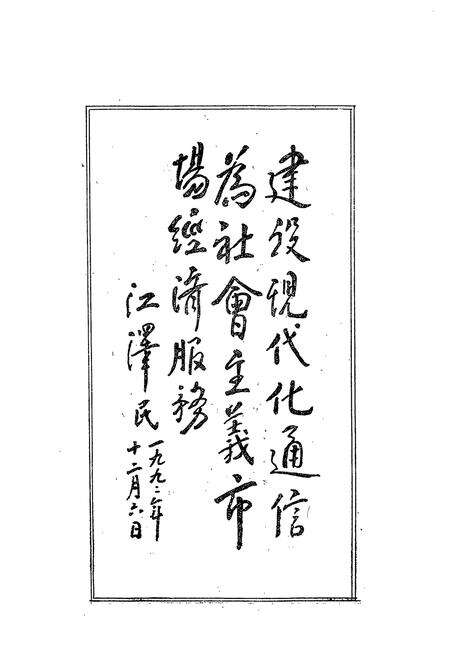 建设現代化通信
為社會主義市
場經濟服務
江澤民
一九九二年
十二月六日